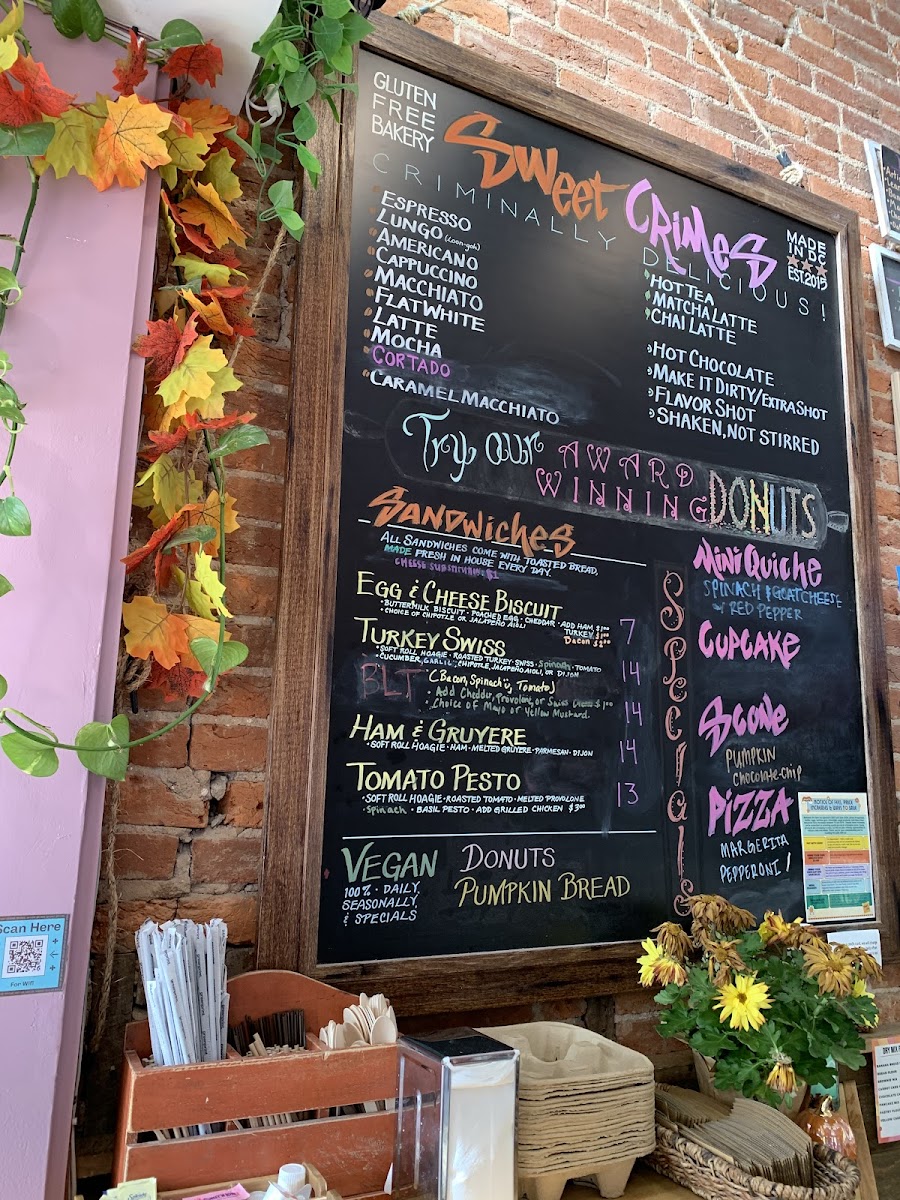 GLUTEN
FREE
BAKERY
Sweet CRIMES
CRIMINALLY DELICIOUS!
MADE
IN DC
EST. 2015
ESPRESSO
LUNGO (Loon-goh)
AMERICANO
CAPPUCCINO
MACCHIATO
FLAT WHITE
LATTE
MOCHA
CORTADO
CARAMEL MACCHIATO
HOT TEA
MATCHA LATTE
CHAI LATTE
HOT CHOCOLATE
MAKE IT DIRTY/EXTRA SHOT
FLAVOR SHOT
SHAKEN, NOT STIRRED
Try our AWARD WINNING DONUTS
SANDWICHES
ALL SANDWICHES COME WITH TOASTED BREAD,
MADE FRESH IN HOUSE EVERY DAY.
CHEESE SUBSTITUTE: $1
EGG & CHEESE BISCUIT 7
• BUTTERMILK BISCUIT • POACHED EGG • CHEDDAR • ADD HAM, $1.00
• CHOICE OF CHIPOTLE OR JALAPEÑO AIOLI TURKEY,
Bacon
TURKEY SWISS 14
• SOFT ROLL HOAGIE • ROASTED TURKEY • SWISS • Spinach • TOMATO
• CUCUMBER, GARLIC, CHIPOTLE, JALAPEÑO AIOLI, OR DIJON
BLT (Bacon, Spinach, Tomato) 14
• Add Cheddar, Provolone, or Swiss Cheese $1.00
• Choice of Mayo or Yellow Mustard.
HAM & GRUYERE 14
• SOFT ROLL HOAGIE • HAM • MELTED GRUYERE • PARMESAN • DIJON
TOMATO PESTO 13
• SOFT ROLL HOAGIE • ROASTED TOMATO • MELTED PROVOLONE
• Spinach • BASIL PESTO • ADD GRILLED CHICKEN $3.00
VEGAN
100% • DAILY,
SEASONALLY,
& SPECIALS
DONUTS
PUMPKIN BREAD
SPECIALS
MINI QUICHE
SPINACH & GOATCHEESE
w/ RED PEPPER
CUPCAKE
SCONE
PUMPKIN
Chocolate-Chip
PIZZA
MARGERITA
PEPPERONI!
Scan Here
For Wifi